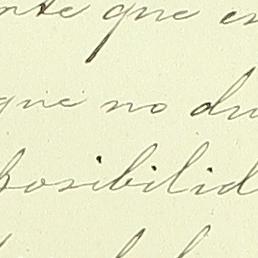 nte que en
que no du
posibilid